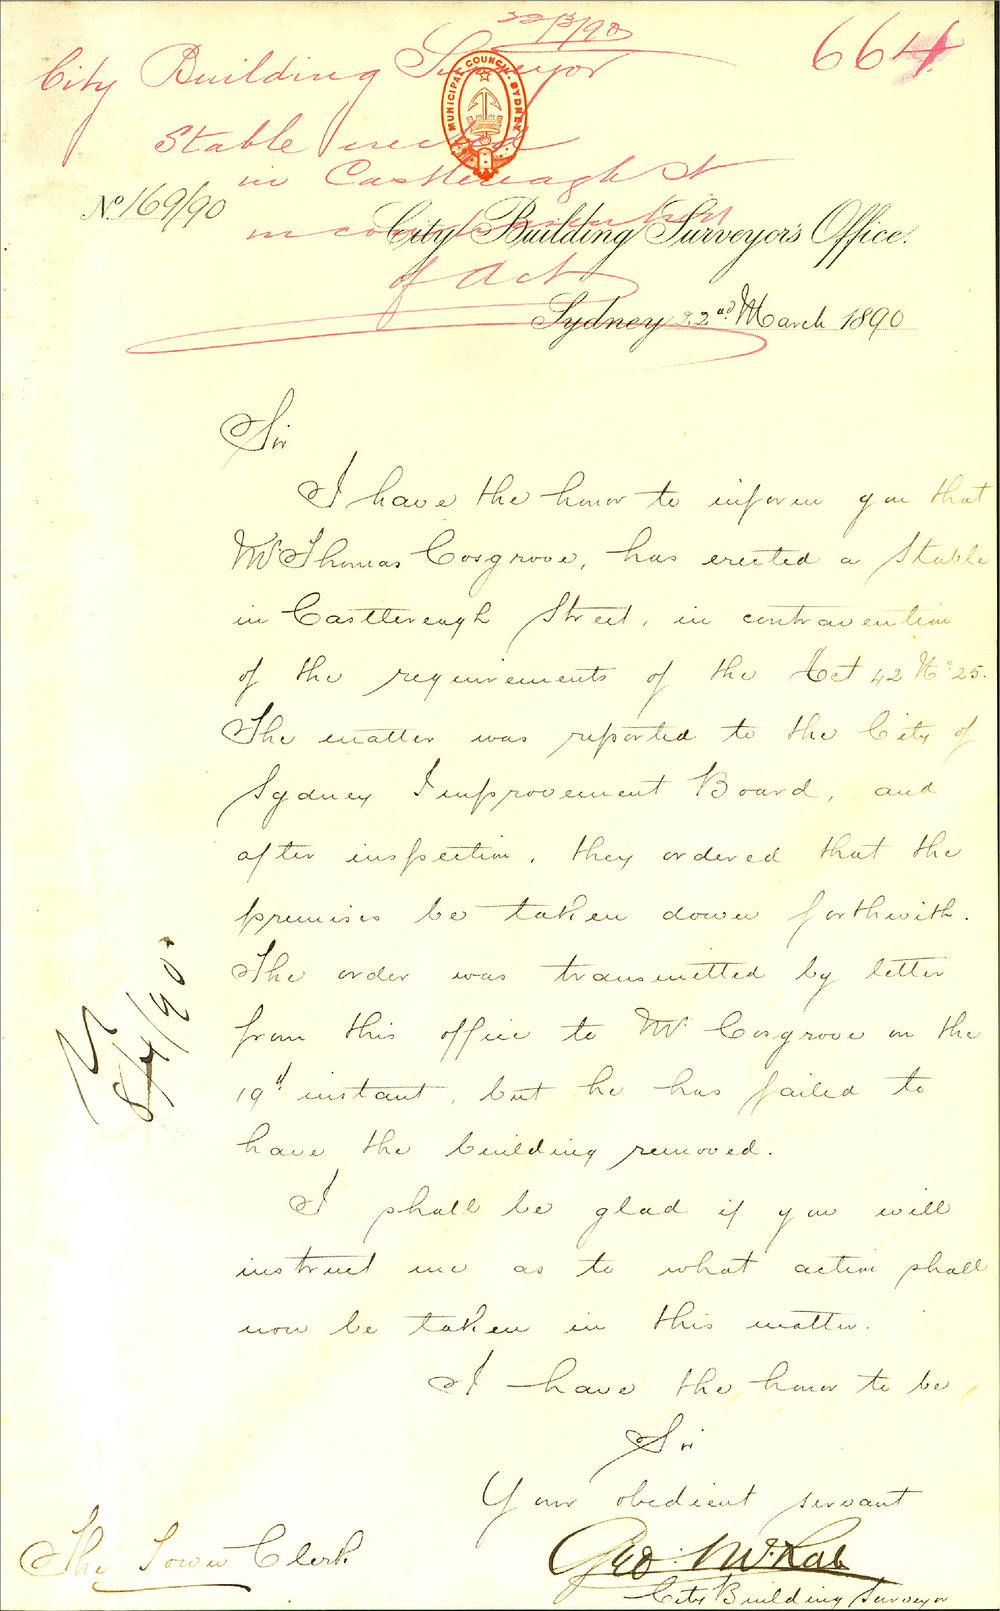 22/3/90
664
City Building Surveyor
MUNICIPAL COUNCIL SYDNEY
Stable erected
in Castlereagh St
No 169/90
in contravention
City Building Surveyor's Office.
of Act
Sydney 22nd March 1890
Sir
I have the honor to inform you that
Mr Thomas Cosgrove, has erected a Stable
in Castlereagh Street, in contravention
of the requirements of the Act 42 No 25.
The matter was reported to the City of
Sydney Improvement Board, and
after inspection, they ordered that the
premises be taken down forthwith.
The order was transmitted by letter
from this office to Mr Cosgrove on the
19th instant, but he has failed to
have the building removed.
I shall be glad if you will
instruct me as to what action shall
now be taken in this matter.
I have the honor to be
Sir
Your obedient servant
Geo: McRae
City Building Surveyor
The Town Clerk
8/4/90